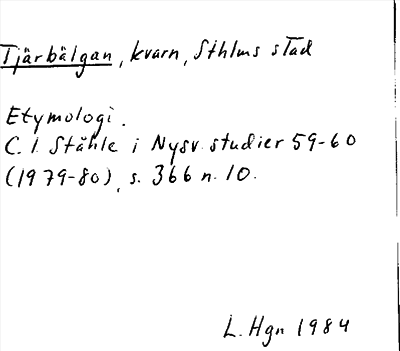 Tjärbälgan, kvarn, Sthlms stad
Etymologi.
C. I. Ståhle i Nysv. studier 59-60
(1979-80), s. 366 n. 10.
L. Hgn 1984